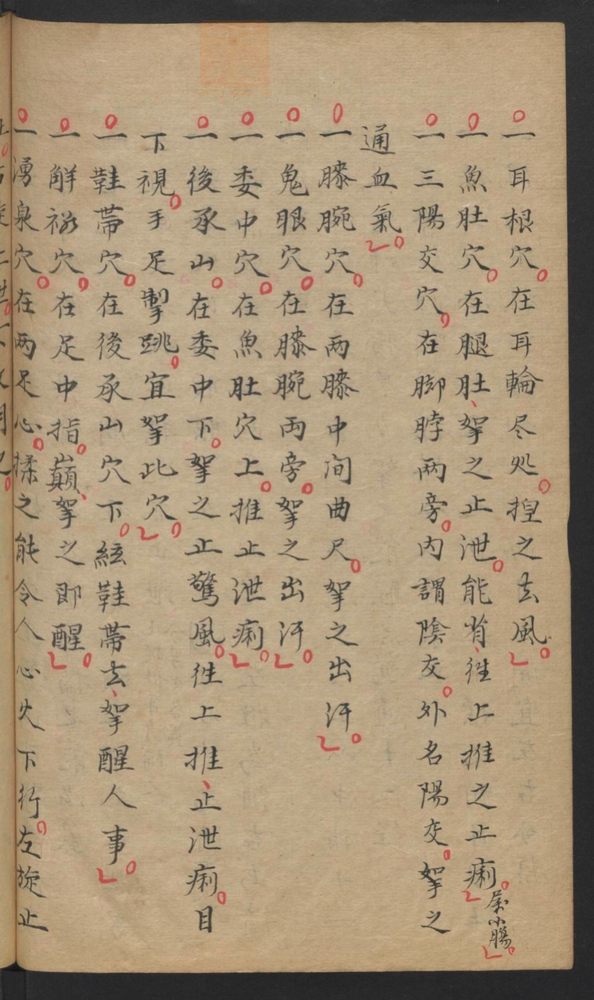 一耳根穴在耳輪尽処揑之去風
一魚肚穴在腿肚拏之止泄能肖徃上推之止痢属小腸
一三陽交穴在脚脖兩旁内謂陰交外名陽交拏之
通血氣
一膝腕穴在兩膝中间曲尺拏之出汗
一鬼眼穴在膝腕两旁拏之出汗
一委中穴在魚肚穴上推止泄痢
一後承山在委中下拏之止驚風徃上推止泄痢目
下視手足掣跳宜拏此穴
一鞋帯穴在後承山穴下絃鞋帯去拏醒人事
一解谿穴在足中指巔拏之即醒
一湧泉穴在两足心揉之能令人心火下行左旋止